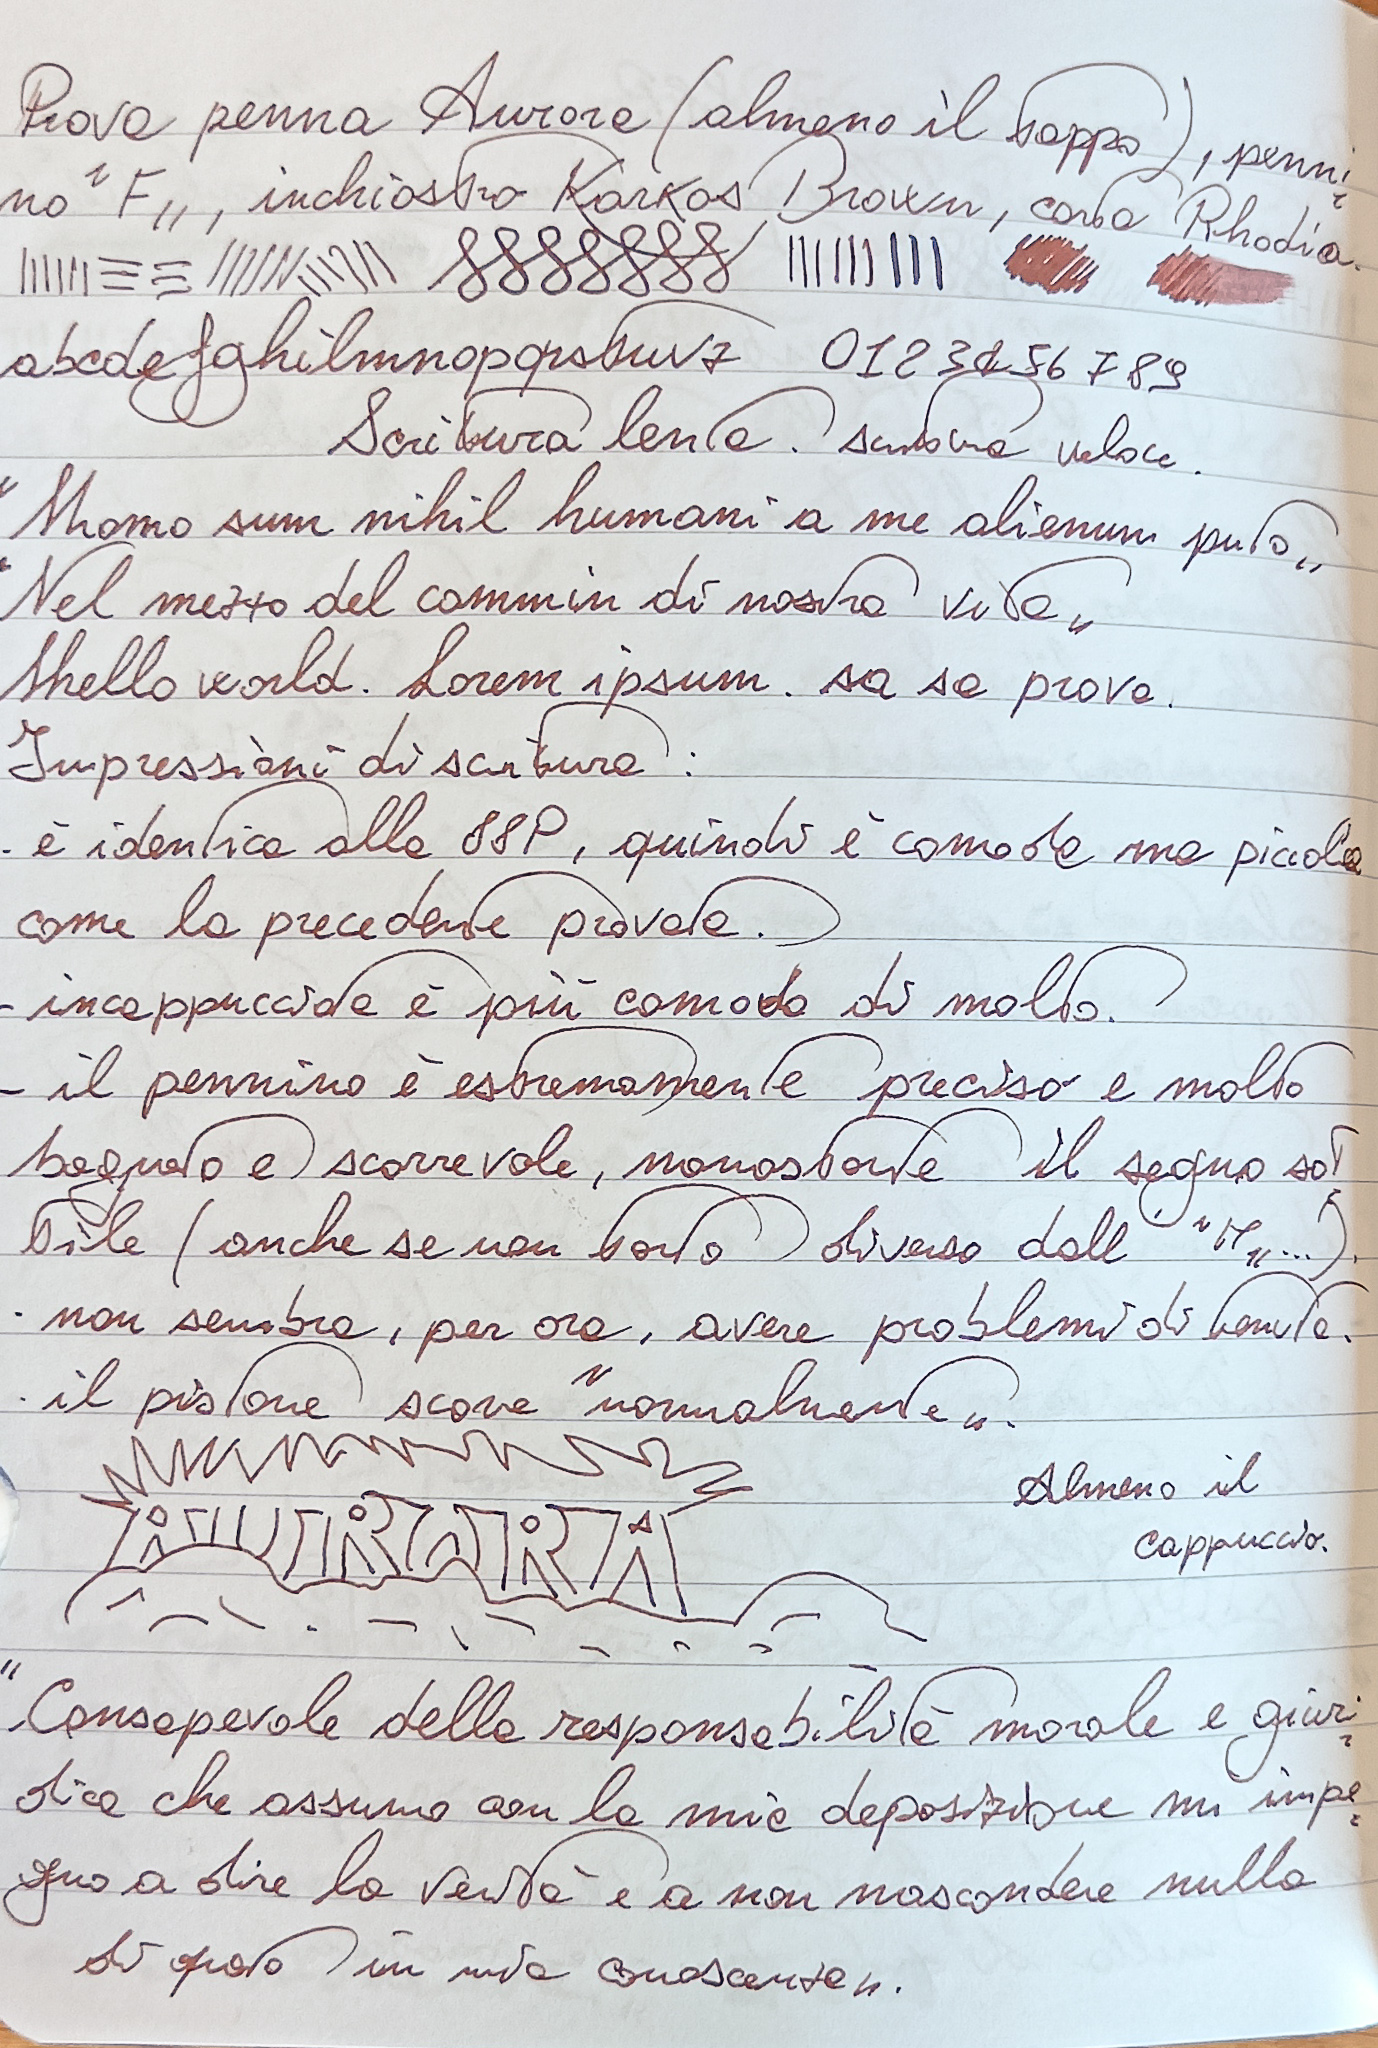 Prova penna Aurora (almeno il tappo), penni
no "F", inchiostro Karkos Brown, carta Rhodia.
abcdefghilmnopqrstuvz 0123456789
Scrittura lenta. scrittura veloce.
"Homo sum nihil humani a me alienum puto"
"Nel mezzo del cammin di nostra vita"
Hello world. Lorem ipsum. sa sa prova.
Impressioni di scrittura:
- è identica alla 88P, quindi è comoda ma piccola
come la precedente provata.
- incappucciata è più comoda di molto.
- il pennino è estremamente preciso e molto
bagnato e scorrevole, nonostante il segno sot
tile (anche se non tanto diverso dall' "M"...).
- non sembra, per ora, avere problemi di tenuta.
- il pistone scorre "normalmente".
AURORA
Almeno il
cappuccio.
"Consapevole della responsabilità morale e giuri
dica che assumo con la mia deposizione mi impe
gno a dire la verità e a non nascondere nulla
di quanto in mia conoscenza".